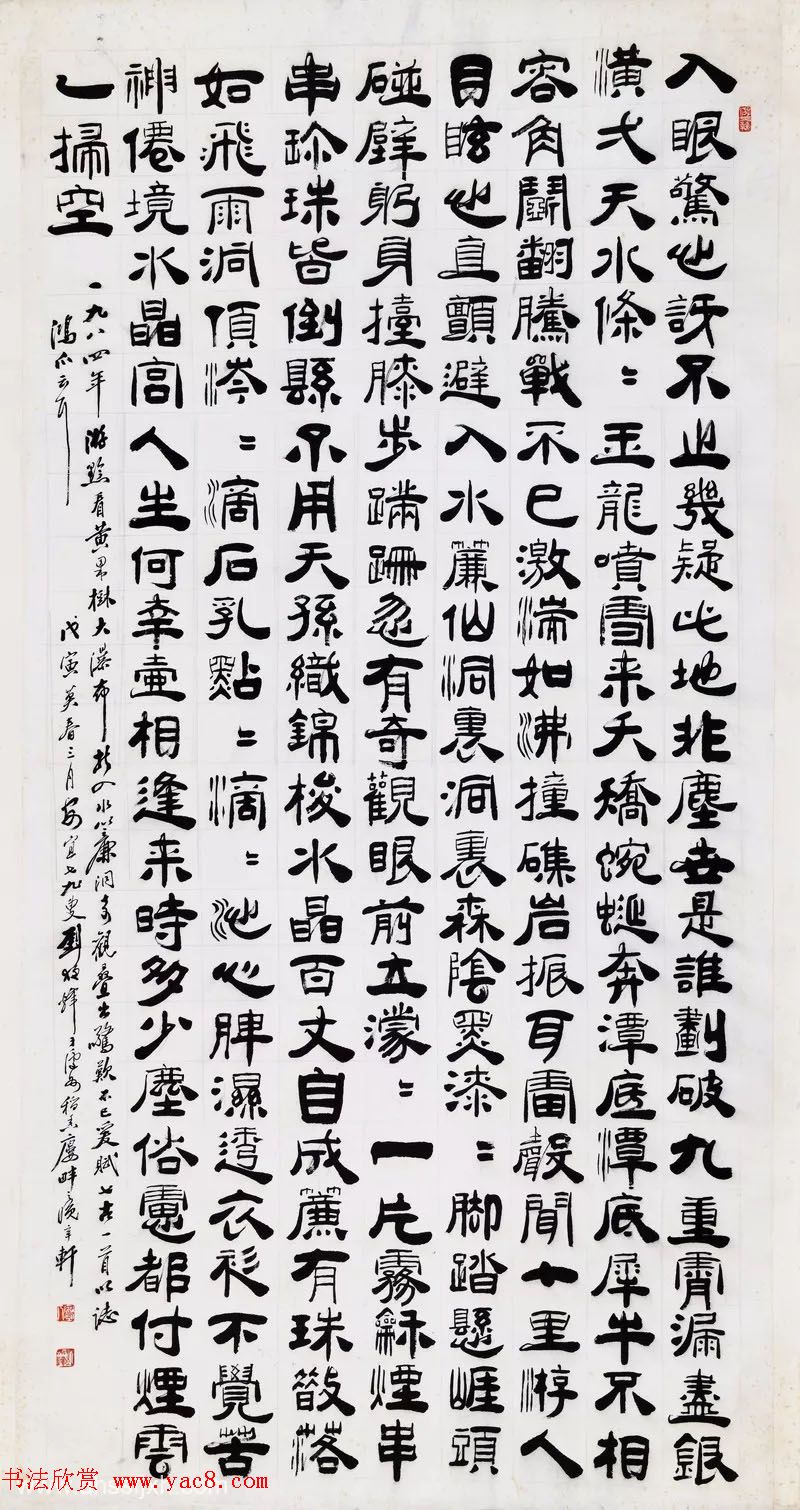 入眼驚心訝不止幾疑此地非塵世是誰劃破九重霄漏盡銀
潢弌天水條〻玉龍噴雪来夭矯蜿蜒奔潭底潭底犀牛不相
容角鬭翻騰戰不已激湍如沸撞礁岩振耳雷聲聞十里游人
目眩心直顫避入水簾仙洞裏洞裏森陰黑漆〻脚踏懸崖頭
碰壁躬身擡膝步蹣跚忽有奇觀眼前立濛〻一片霧龢煙串
串珍珠皆倒縣不用天孫織錦梭水晶百丈自成簾有珠散落
如飛雨洞頂涔〻滴石乳點〻滴〻沁心脾濕透衣衫不覺苦
神僊境水晶宫人生何幸壷相逢来時多少塵俗慮都付煙雲
一掃空
一九八四年游黔看黄果樹大瀑布於入水簾洞奇觀疊出驚歎不已爰賦七古一首以誌
鴻爪云尔
戊寅莫春三月安宜七九叟劉
軒
书法欣赏 www.yac8.com